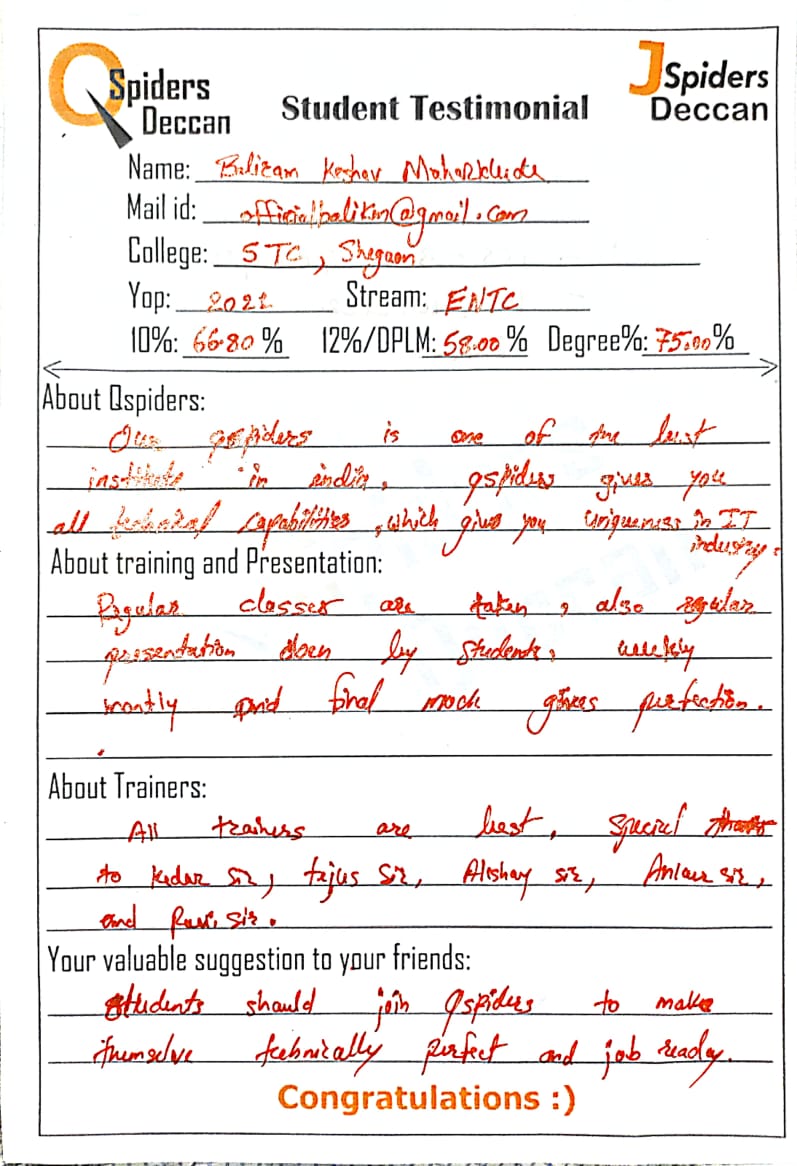 QSpiders Deccan
JSpiders Deccan
Student Testimonial
Name: Baliram Keshav Moharkhede
Mail id: officialbalikm@gmail.com
College: STC, Shegaon
Yop: 2021 Stream: ENTC
10%: 66.80 % 12%/DPLM: 58.00 % Degree%: 75.00 %
About Qspiders:
Our qspiders is one of the best
institute in india, qspiders gives you
all technical capabilities, which gives you uniqueness in IT
industry.
About training and Presentation:
Regular classes are taken, also regular
presentation doen by students, weekly
montly and final mock gives perfection.
About Trainers:
All trainers are best, special thanks
to kedar sir, tejus sir, Akshay sir, sir,
and Ravi sir.
Your valuable suggestion to your friends:
Students should join Qspiders to make
themselve technically perfect and job ready.
Congratulations :)